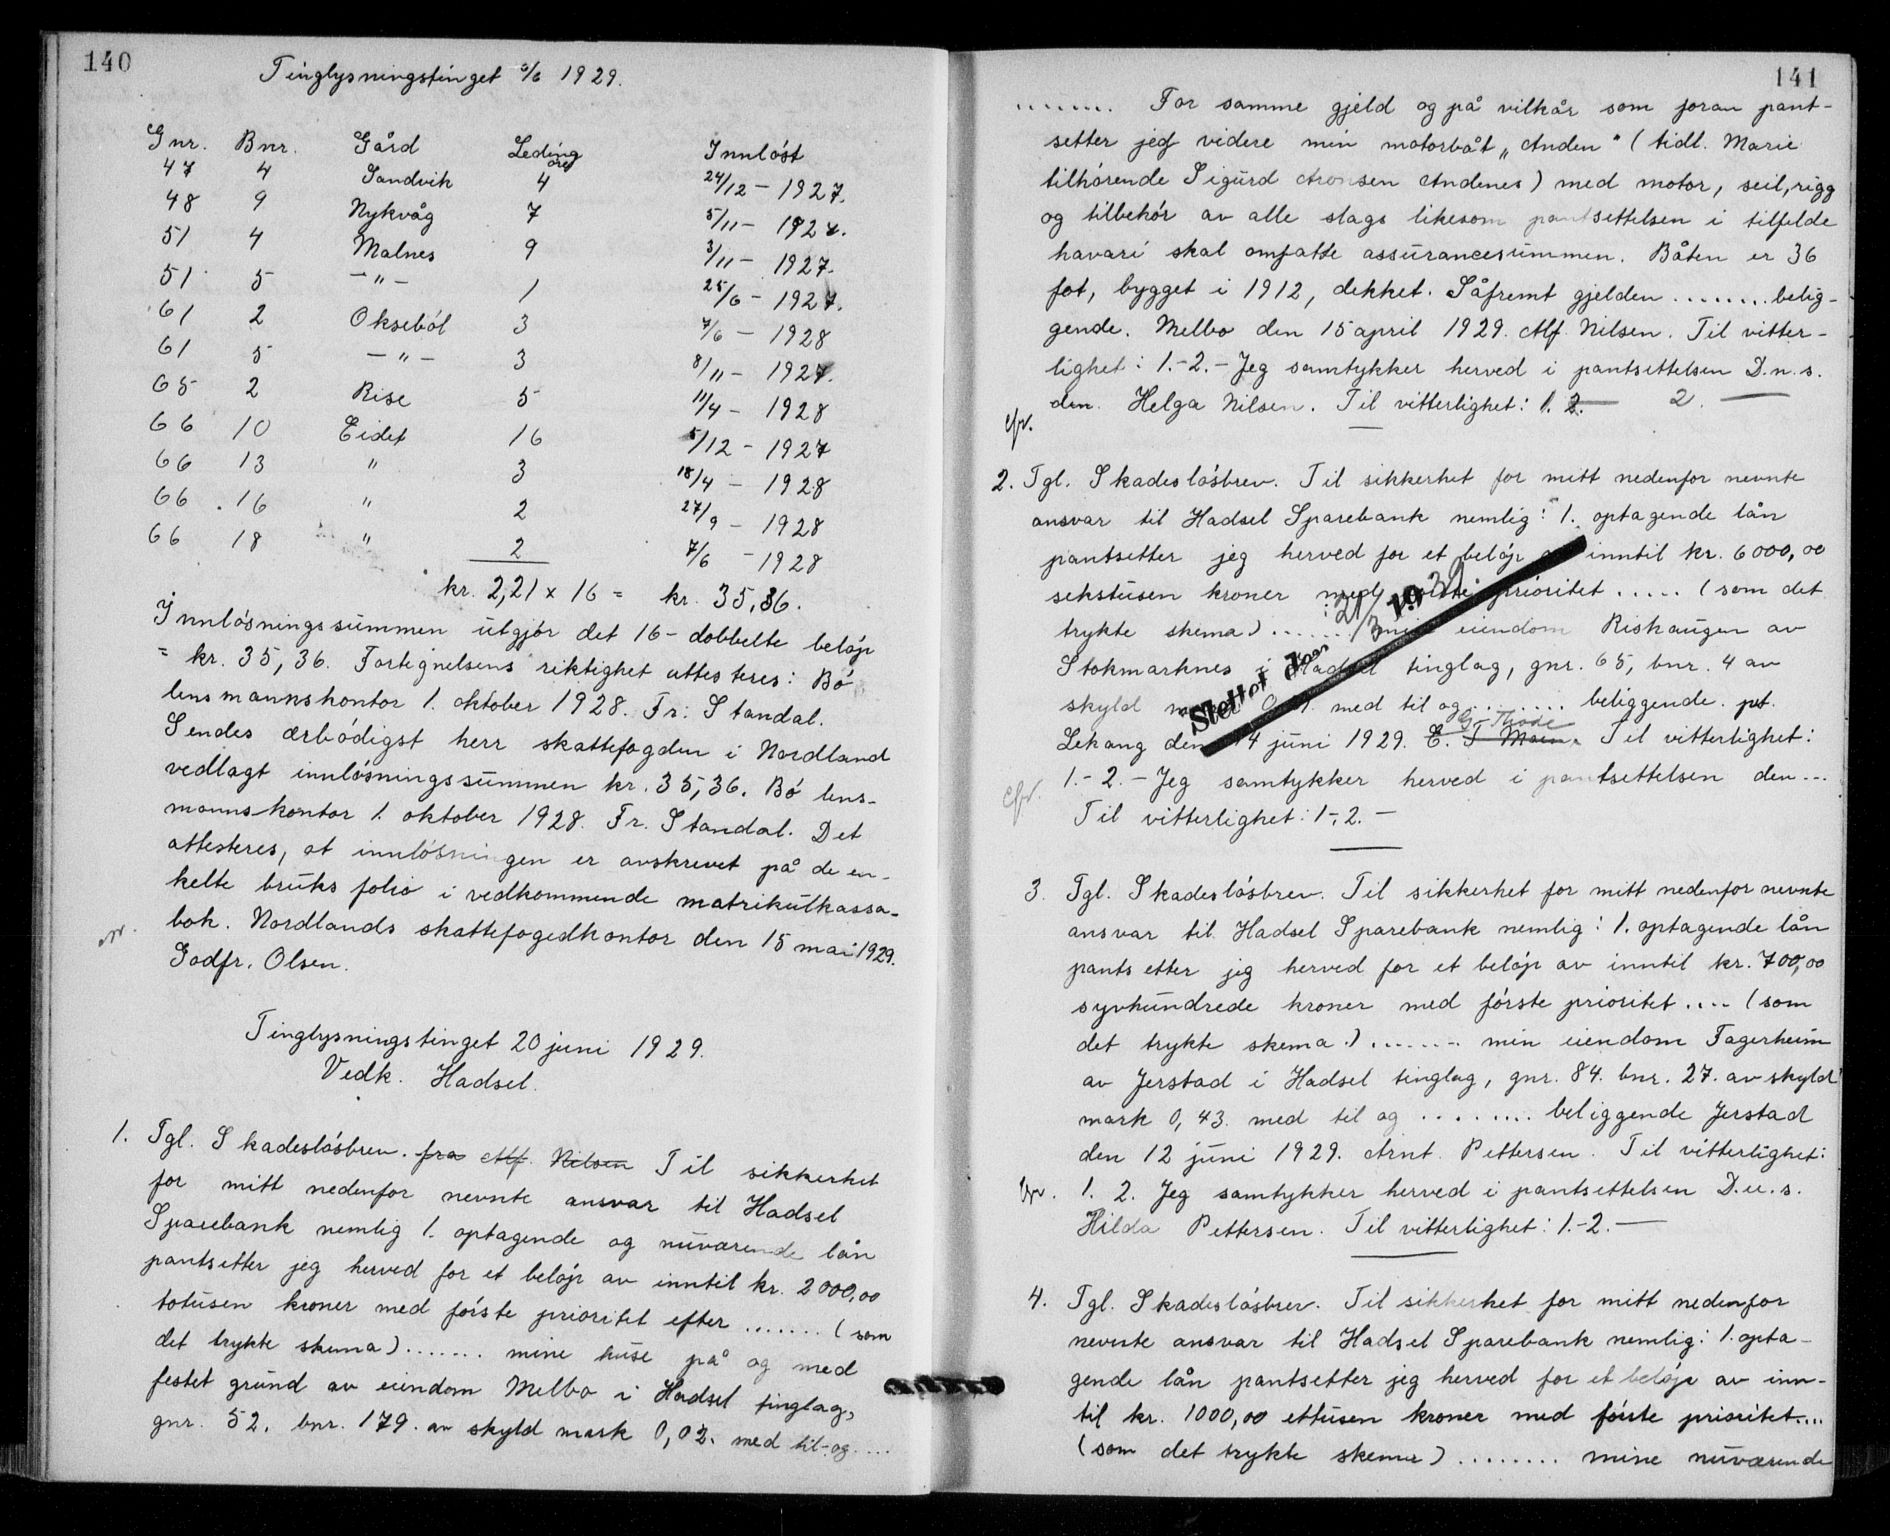 140
Tinglysningstinget 6/6 1929.
Gnr. Bnr. Gård Leding øre Innløst
47 4 Sandvik 4 24/12 - 1927.
48 9 Nykvåg 7 5/11 - 1927.
51 4 Malnes 9 3/11 - 1927.
51 5 - " - 1 25/6 - 1927.
61 2 Oksebøl 3 7/6 - 1928
61 5 - " - 3 8/11 - 1927.
65 2 Rise 5 11/4 - 1928
66 10 Eidet 16 5/12 - 1927
66 13 " 3 18/4 - 1928
66 16 " 2 27/9 - 1928
66 18 " 2 7/6 - 1928
kr. 2,21 x 16 = kr. 35,36.
Innløsningssummen utgjør det 16-dobbelte beløp
= kr. 35,36. Fortegnelsens riktighet attesteres: Bø
lensmannskontor 1. oktober 1928. Fr. Standal.
Sendes ærbødigst herr skattefogden i Nordland
vedlagt innløsningssummen kr. 35,36. Bø lens-
mannskontor 1. oktober 1928. Fr. Standal. Det
attesteres, at innløsningen er avskrevet på de en-
kelte bruks folio i vedkommende matrikulkassa-
bok. Nordlands skattefogedkontor den 15 mai 1929.
Godfr. Olsen.
Tinglysningstinget 20 juni 1929.
Vedk. Hadsel.
1. Tgl. Skadesløsbrev. fra Alf. Nilsen Til sikkerhet
for mitt nedenfor nevnte ansvar til Hadsel
Sparebank nemlig 1. optagende og nuværende lån
pantsetter jeg herved for et beløp av inntil kr. 2000,00
totusen kroner med første prioritet efter ....... (som
det trykte skema) ....... mine huse på og med
festet grund av eiendom Melbo i Hadsel tinglag,
gnr. 52. bnr. 179. av skyld mark 0,02. med til-og ....
141
........ For samme gjeld og på vilkår som foran pant-
setter jeg videre min motorbåt „Anden" (tidl. Marie
tilhørende Sigurd Aronsen Andenes) med motor, seil, rigg
og tilbehør av alle slags likesom pantsettelsen i tilfelde
havari skal omfatte assurancesummen. Båten er 36
fot, bygget i 1912, dekket. Såfremt gjelden ........ belig-
gende. Melbo den 15 april 1929. Alf. Nilsen. Til vitter-
lighet: 1.-2.- Jeg samtykker herved i pantsettelsen D.u.s.
den. Helga Nilsen. Til vitterlighet: 1. 2. 2. —
2. Tgl. Skadesløsbrev. Til sikkerhet for mitt nedenfor nevnte
ansvar til Hadsel Sparebank nemlig: 1. optagende lån
pantsetter jeg herved for et beløp av inntil kr. 6000,00
sekstusen kroner med første prioritet ..... (som det
trykte skema) ...... min eiendom Rishaugen av
Stokmarknes i Hadsel tinglag, gnr. 65, bnr. 4 av
skyld mark 0, med til og ....... beliggende. pt.
Slettet den 21/3 1932
G. Thode
Lekang den 14 juni 1929. E. Til vitterlighet:
1.- 2.- Jeg samtykker herved i pantsettelsen den ...
Til vitterlighet: 1-, 2.-
3. Tgl. Skadesløsbrev. Til sikkerhet for mitt nedenfor nevnte
ansvar til Hadsel Sparebank nemlig: 1. optagende lån
pantsetter jeg herved for et beløp av inntil kr. 700,00
syvhundrede kroner med første prioritet .... (som
det trykte skema.) ....... min eiendom Fagerheim
av Jerstad i Hadsel tinglag, gnr. 84. bnr. 27. av skyld
mark 0,43. med til og ........ beliggende Jerstad
den 12 juni 1929. Arnt. Pettersen. Til vitterlighet:
1. 2. Jeg samtykker herved i pantsettelsen D.u.s.
Hilda Pettersen. Til vitterlighet: 1.-2.—
4. Tgl. Skadesløsbrev. Til sikkerhet for mitt nedenfor
nevnte ansvar til Hadsel Sparebank nemlig: 1. opta-
gende lån pantsetter jeg herved for et beløp av inn-
til kr. 1000,00 ettusen kroner med første prioritet ....
(som det trykte skema) ........ mine nuværende